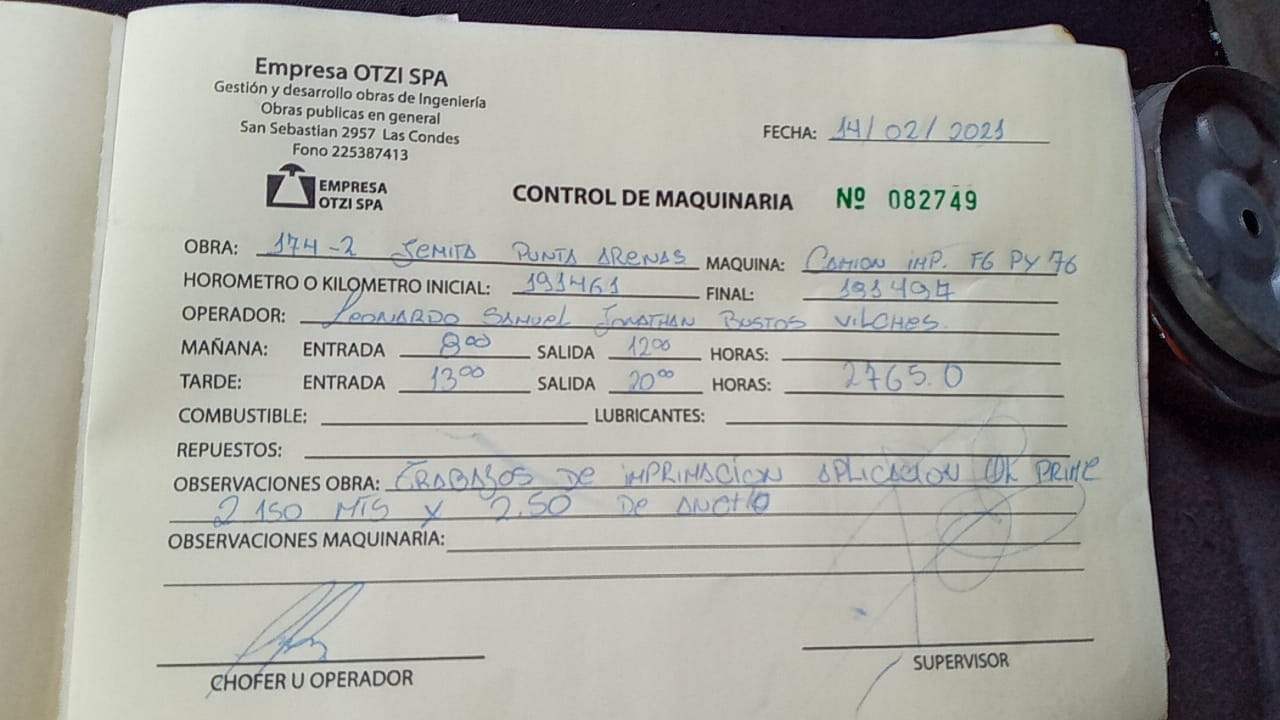 Empresa OTZI SPA
Gestión y desarrollo obras de Ingeniería
Obras publicas en general
San Sebastian 2957 Las Condes
Fono 225387413
EMPRESA
OTZI SPA
FECHA: 14/02/2021
CONTROL DE MAQUINARIA Nº 082749
OBRA: 174-2 PUNTA ARENAS MAQUINA: CAMION IMP. FG PY 76
HOROMETRO O KILOMETRO INICIAL: 191461 FINAL: 191497
OPERADOR: LEONARDO SAMUEL JONATHAN BUSTOS VILCHES.
MAÑANA: ENTRADA 8:00 SALIDA 12:00 HORAS:
TARDE: ENTRADA 13:00 SALIDA 20:00 HORAS: 2765.0
COMBUSTIBLE: LUBRICANTES:
REPUESTOS:
OBSERVACIONES OBRA: TRABAJOS DE IMPRIMACION APLICACION PRIME
2150 MTS X 2.50 DE ANCHO
OBSERVACIONES MAQUINARIA:
CHOFER U OPERADOR
SUPERVISOR